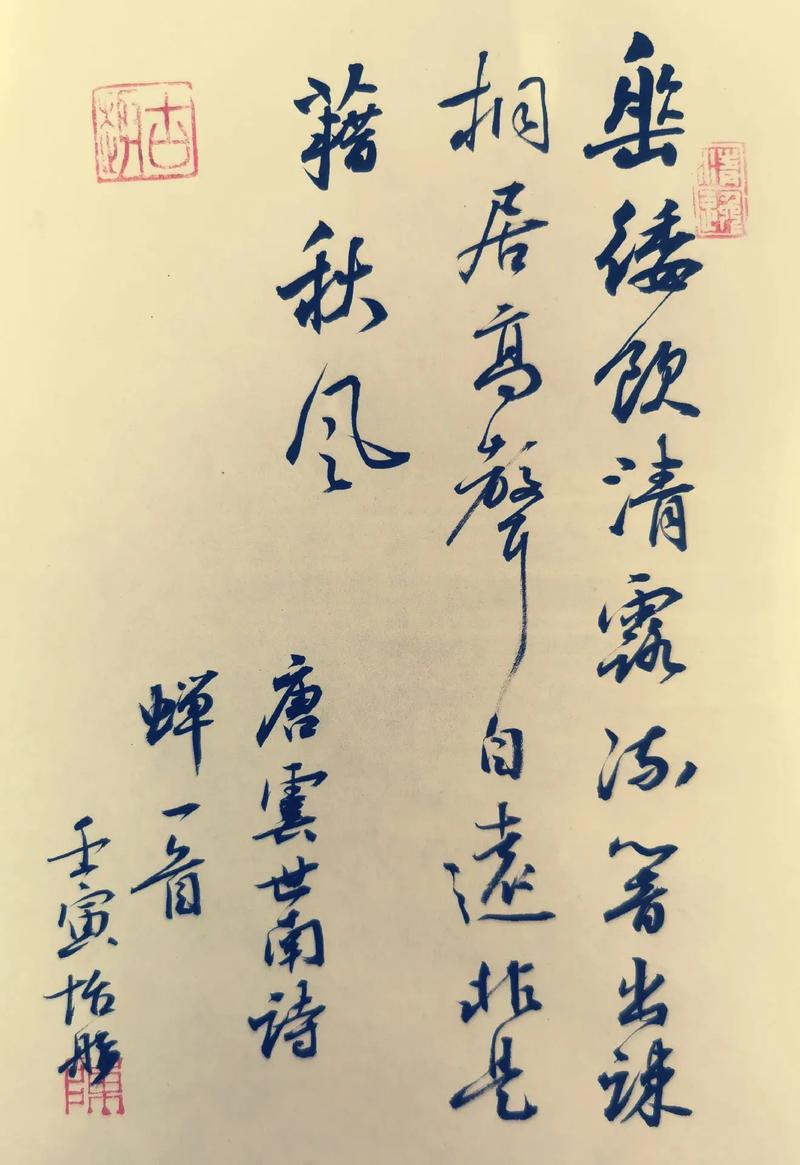 垂緌飲清露流響出疎
桐居高聲自遠非是
藉秋風
唐虞世南詩
蝉一首
壬寅怡